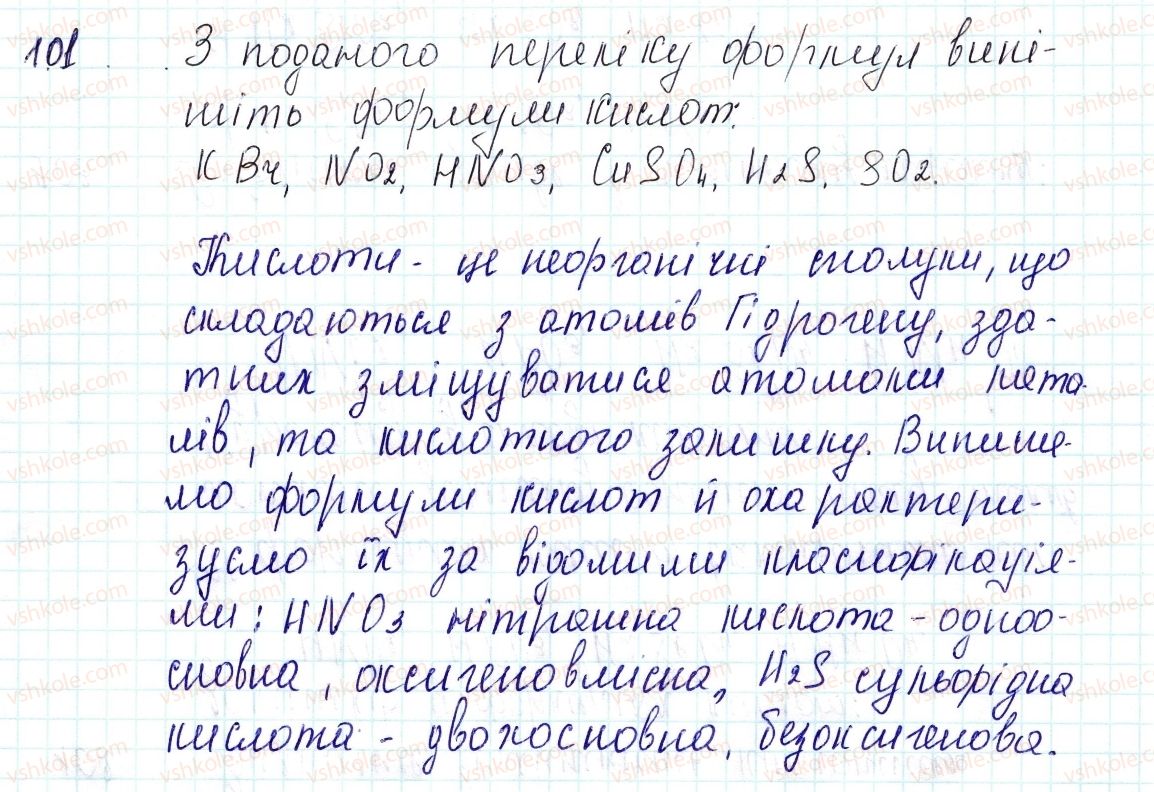 101 З поданого переліку формул випі-
шіть формули кислот:
KBr, NO2, HNO3, CuSO4, H2S, SO2.
Кислоти - це неорганічні сполуки, що
складаються з атомів Гідрогену, зда-
тних зміщуватися атомами мета-
лів, та кислотного залишку. Випише-
мо формули кислот й охарактери-
зуємо їх за відомими класифікація-
ми: HNO3 нітратна кислота - одноо-
сновна, оксигеновмісна, H2S сульфідна
кислота - двохосновна, безоксигенова.